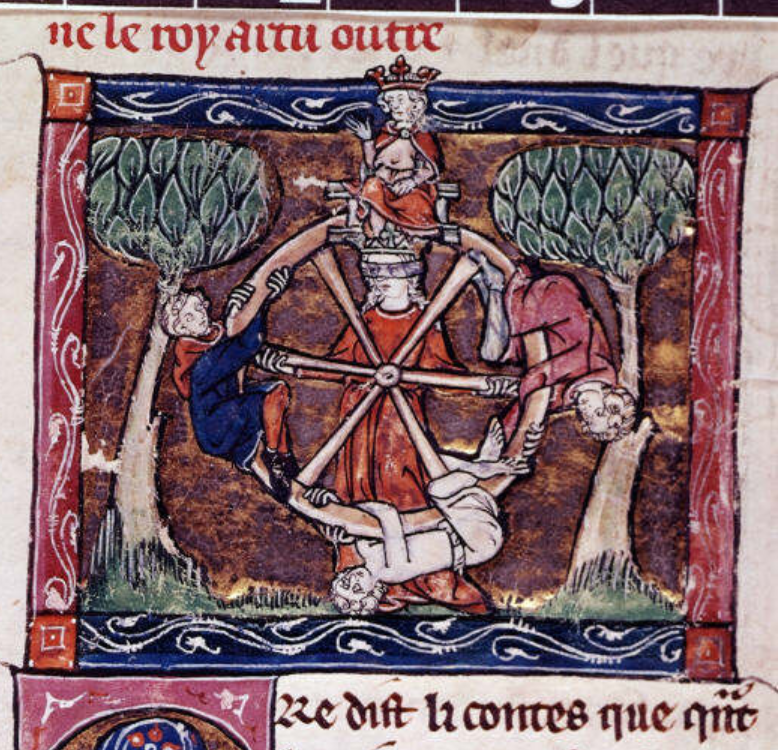 ne le roy artu outre
Re dist li contes que qñt